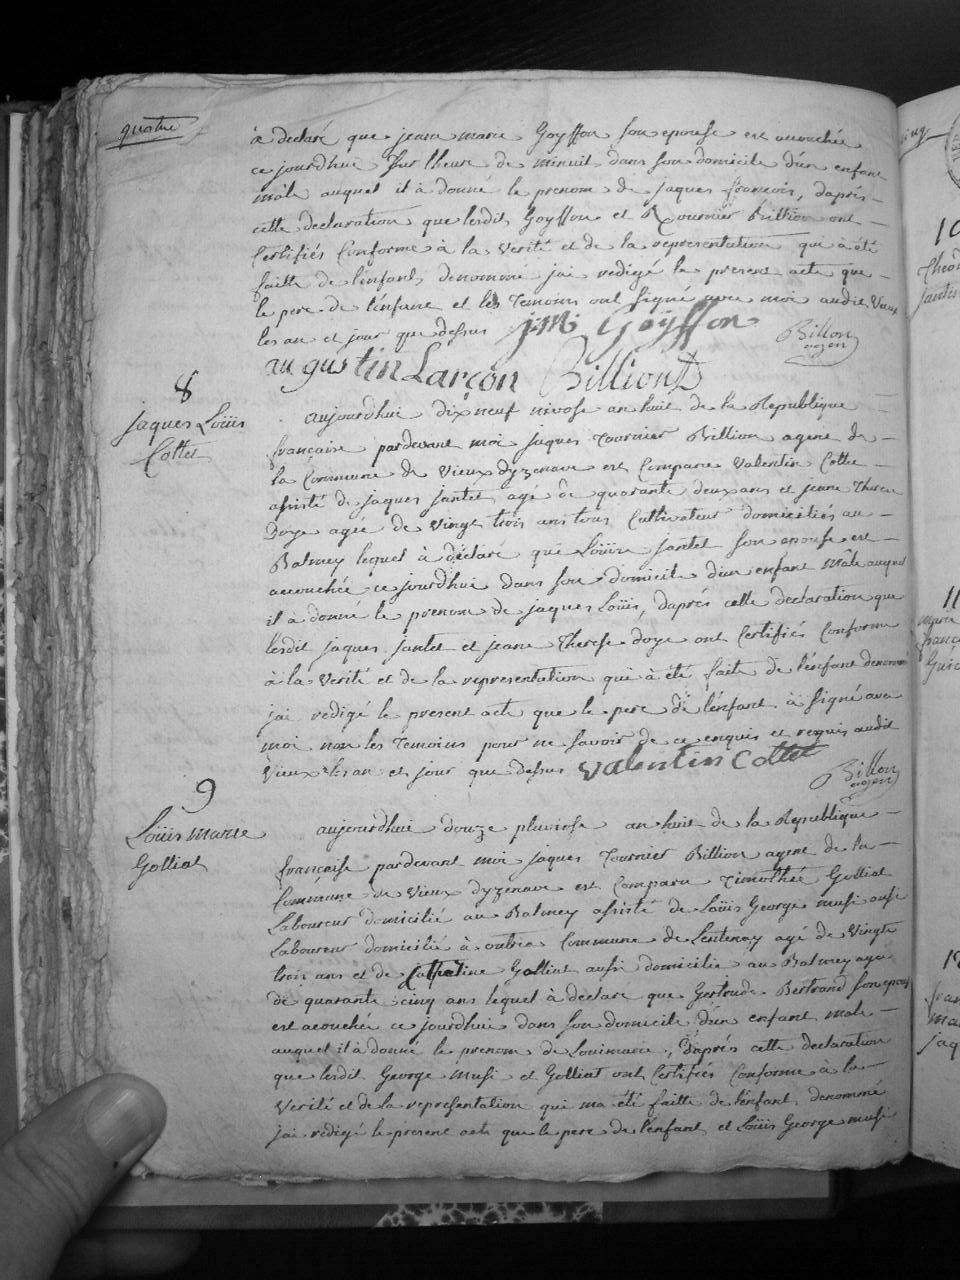 quatre
à declaré que jeane marie Goyffon son epouse est acouchée
ce jourdhui sur lheure de minuit dans son domicile dun enfant
mâle auquel il à donné le prenom de jaques françois, daprés
cette declaration que lesdits Goyffon et Tournier Billion ont
Certifiés Conforme à la verité et de la representation qui à été
faitte de lenfant denommé jai redigé le present acte que
le pere de l'enfant et les Temoins ont signé avec moi audit Vieux
les an et jour que dessus j:m: Goyffon
Billon
agen
augustin Larçon Billiont
8
jaques Loüis
Cottet
aujourdhui dixneuf nivose an huit de la Republique
française pardevant moi jaques Tournier Billion agent de
la Commune de Vieux dyzenave est Comparu Valentin Cotte
assisté de jaques jantet agé de quarante deux ans et jeane Therese
Doye agée de vingt trois ans tous Cultivateur domiciliés au
Balmey lequel à déclaré que Loüise jantet son epouse est
acouchée ce jourdhui dans son domicile dun enfant mâle auquel
il à donné le prenom de jaques Loüis, daprés cette declaration que
lesdit jaques jantet et jeane Therese doye ont Certifiés Conforme
à la verité et de la representation qui à été faite de lenfant denommé
jai redigé le present acte que le pere de l'enfant à signé avec
moi non les Temoins pour ne savoir de ce enquis et requis audit
Vieux les an et jour que dessus Valentin Cottet
Billon
agen
9
Loüis marie
Golliat
aujourdhui douze pluviose an huit de la Republique
française pardevant moi jaques Tournier Billion agent de la
Commune de Vieux dyzenave est Comparu Timothée Golliat
Laboureur domicilié au Balmey assisté de Loüis George musi aussi
Laboureur domicilié à outria Commune de Lentenay agé de vingt
trois ans et de Catherine Golliat aussi domicilié au Balmey agée
de quarante cinq ans lequel à declaré que Gertrude Bertrand son epouse
est acouchée ce jourdhui dans son domicile dun enfant mâle
auquel il à donné le prenom de Louimarie, daprés cette declaration
que lesdit George Musi et Golliat ont Certifiés Conforme à la
verité et de la representation qui ma été faitte de l'enfant denommé
jai redigé le present acte que le pere de l'enfant et Loüis George musi